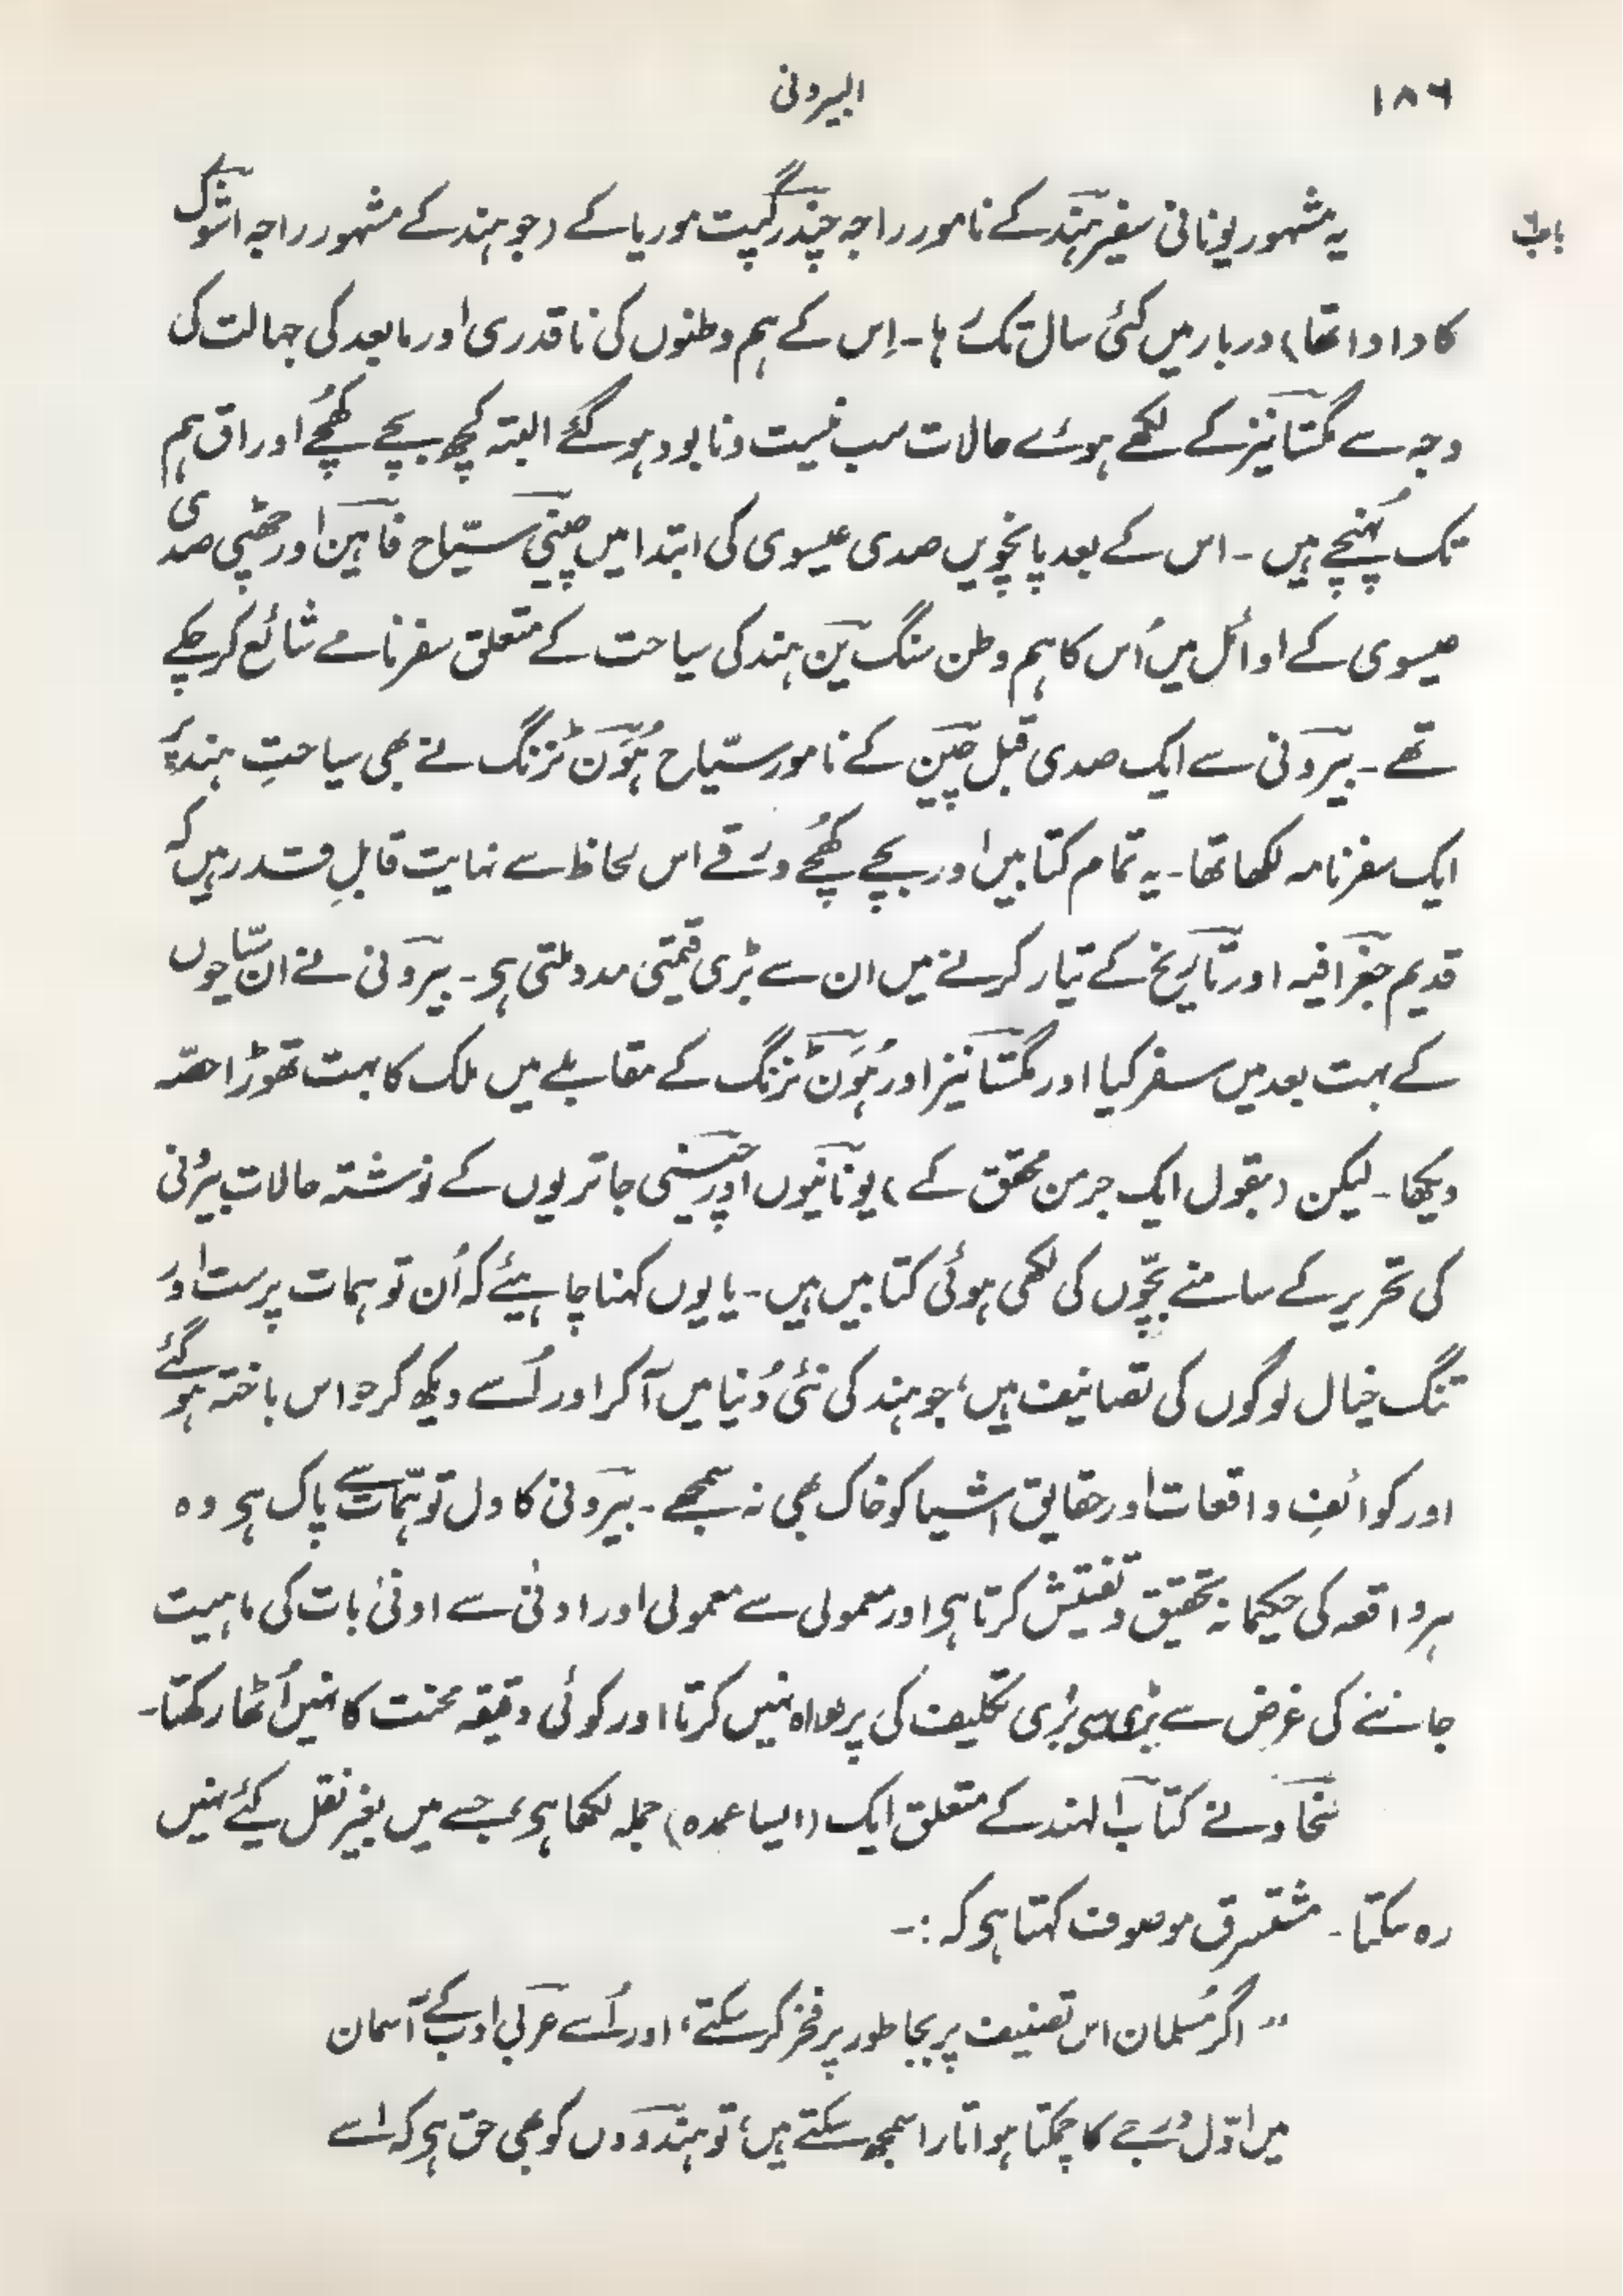 ۱۸۶
البیرونی
باب
یہ مشہور یونانی سفیر ہند کے نامور راجہ چندر گپت موریا کے (جو ہند کے مشہور راجہ اشوک کے
کا دادا تھا) دربار میں کئی سال تک رہا۔ اِس کے ہم وطنوں کی ناقدری اور مابعد کی جہالت کی
وجہ سے مگستانیز کے لکھے ہوئے حالات سب نیست و نابود ہو گئے البتہ کچھ بچے کھُچے اوراق ہم
تک پہُنچے ہیں۔ اس کے بعد پانچویں صدی عیسوی کی ابتدا میں چینی سیّاح فاہین اور چھٹی صدی
عیسوی کے اوائل میں اُس کا ہم وطن سنگ ین ہند کی سیاحت کے متعلق سفرنامے شائع کر چکے
تھے۔ بیرونی سے ایک صدی قبل چین کے نامور سیّاح ہُوَن ٹزنگ نے بھی سیاحتِ ہند پر
ایک سفرنامہ لکھا تھا۔ یہ تمام کتابیں اور بچے کھُچے ورَقے اس لحاظ سے نہایت قابلِ قدر ہیں کہ
قدیم جغرافیہ اور تاریخ کے تیار کرنے میں ان سے بڑی قیمتی مدد ملتی ہی۔ بیرونی نے ان سیّاحوں
کے بہت بعد میں سفر کیا اور مگستانیز اور ہُوَن ٹزنگ کے مقابلے میں ملک کا بہت تھوڑا حصّہ
دیکھا۔ لیکن (بقول ایک جرمن محقق کے) یونانیوں اور چینی جاتریوں کے نوشتہ حالات بیرونی
کی تحریر کے سامنے بچّوں کی لکھی ہوئی کتابیں ہیں۔ یا یوں کہنا چاہیئے کہ اُن توہمات پرست اور
تنگ خیال لوگوں کی تصانیف ہیں، جو ہند کی نئی دُنیا میں آ کر اور اُسے دیکھ کر حواس باختہ ہو گئے
اور کوائفِ واقعات اور حقایق اشیا کو خاک بھی نہ سمجھے۔ بیرونی کا دل توہّمات سے پاک ہی وہ
ہر واقعہ کی حکیمانہ تحقیق و تفتیش کرتا ہی اور معمولی سے معمولی اور ادنیٰ سے ادنیٰ بات کی ماہیت
جاننے کی غرض سے بڑی سی بڑی تکلیف کی پرواہ نہیں کرتا اور کوئی دقیقہ محنت کا نہیں اُٹھا رکھتا۔
سخاؤ نے کتاب الہند کے متعلق ایک (ایسا عمدہ) جملہ لکھا ہی جسے میں بغیر نقل کیئے نہیں
رہ سکتا۔ مستشرق موصوف کہتا ہی کہ :۔
" اگر مُسلمان اس تصنیف پر بجا طور پر فخر کر سکتے، اور اُسے عربی ادب کے آسمان
میں اوّل دَرجے کا چمکتا ہوا تارا سمجھ سکتے ہیں؛ تو ہندوؤں کو بھی حق ہی کہ اسے